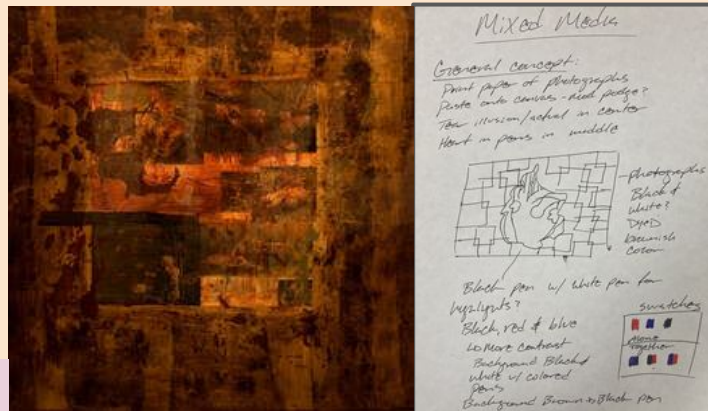 Mixed Media
General concept:
Print paper of photographs
Paste onto canvas - mod podge?
Tear illusion/actual in center
Heart in pens in middle
photographs
Black &
white?
Dyed
brownish
color
Black pen w/ white pen for
highlights?
Black, red & blue
more contrast
Background Black &
white w/ colored
pens
Background Brown Black pen
swatches
Alone
Together